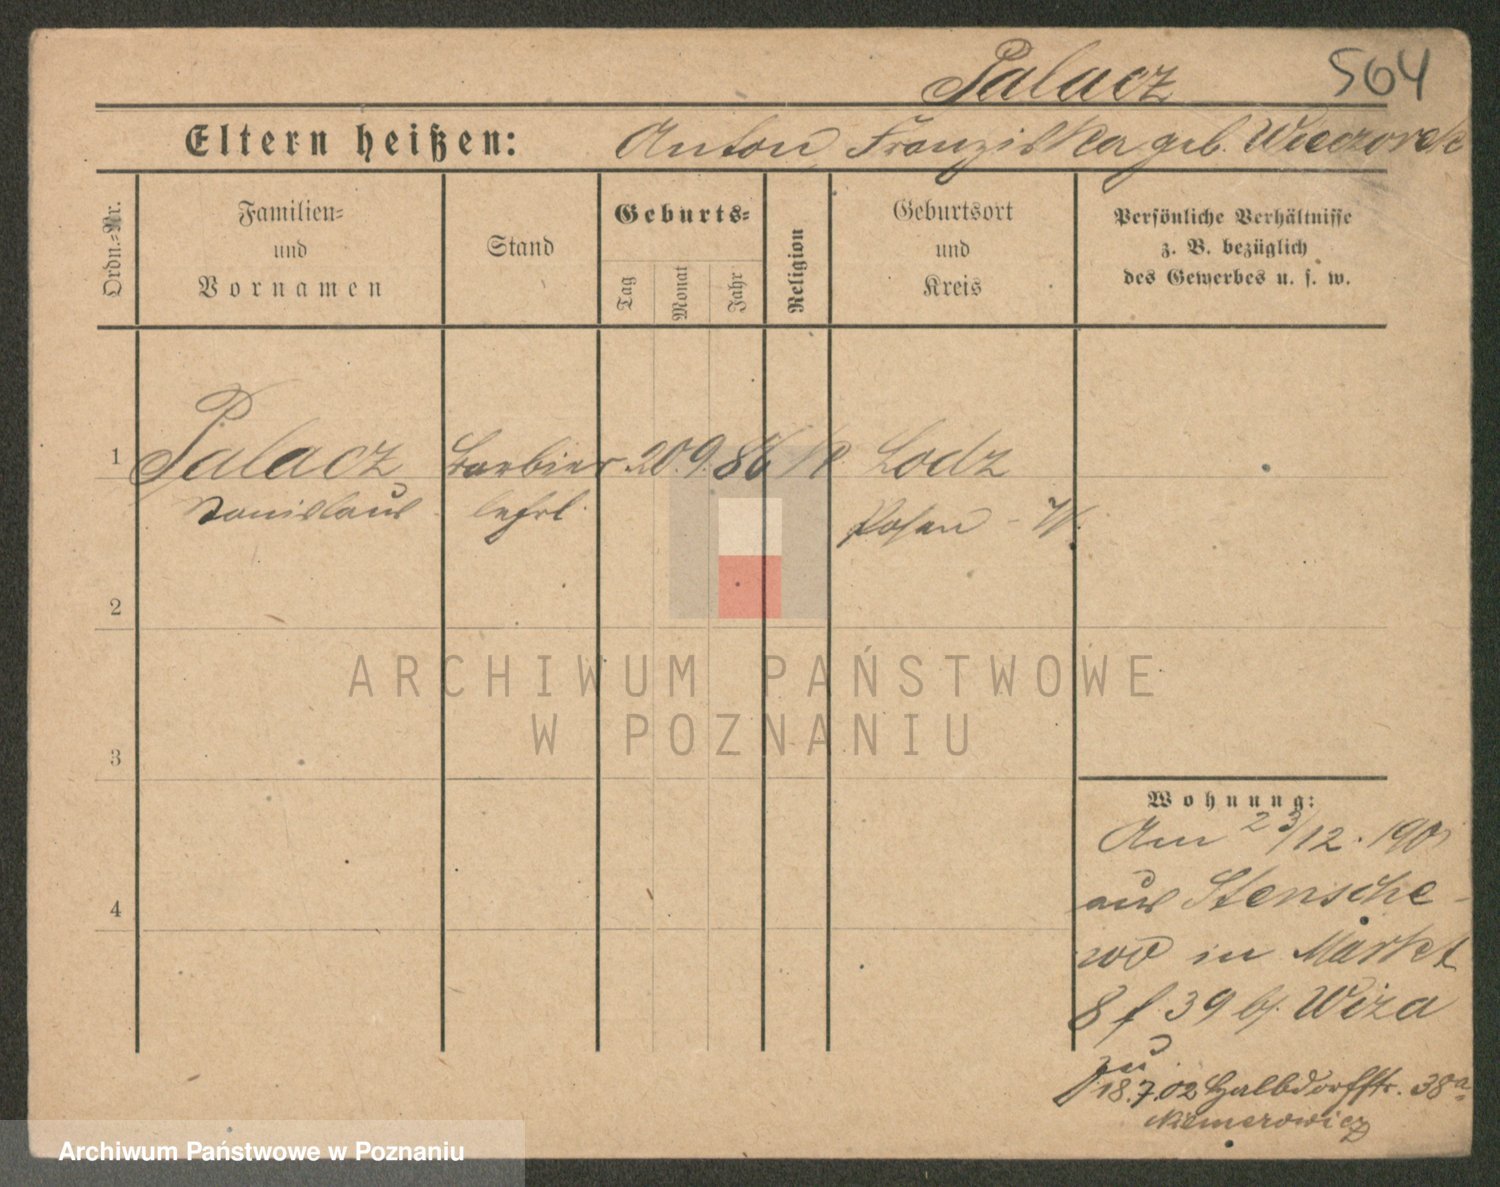 Palacz 504
Eltern heißen: Anton, Franziska geb. Wieczorek
Ordn.=Nr.
Familien=
und
Vornamen
Stand
Geburts=
Tag
Monat
Jahr
Religion
Geburtsort
und
Kreis
Persönliche Verhältnisse
z. B. bezüglich
des Gewerbes u. s. w.
1 Palacz Barbier 20. 9. 86 Lodz
Stanislaus lehrl. Posen - W.
2
ARCHIWUM PAŃSTWOWE
W POZNANIU
3
4
Wohnung:
Am 23/12. 190
aus Stensche-
wo in Markt
8 f. 39 b/. Wiza
zu
18.7.02 Halbdorfstr. 38a
Niemerowicz
Archiwum Państwowe w Poznaniu